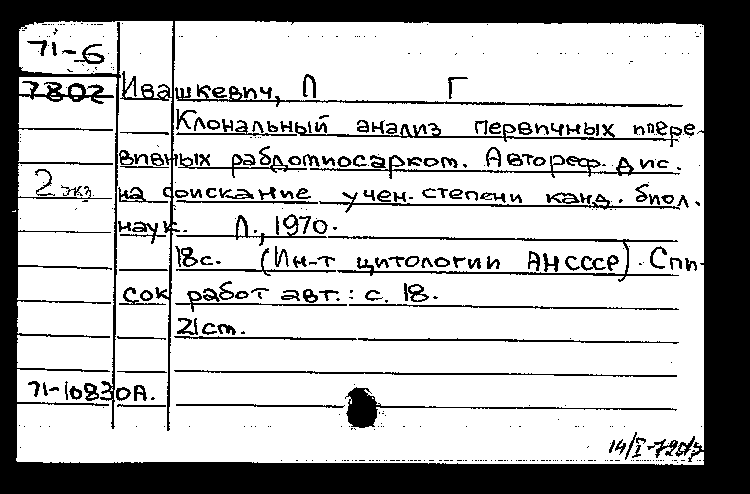 71-6
7802
Ивашкевич, Л Г
Клональный анализ первичных и пере-
вивных рабдомиосарком. Автореф. дис.
2 экз. на соискание учен. степени канд. биол.
наук. Л., 1970.
18с. (Ин-т цитологии АН СССР). Спи-
сок работ авт.: с. 18.
21см.
71-10830А.